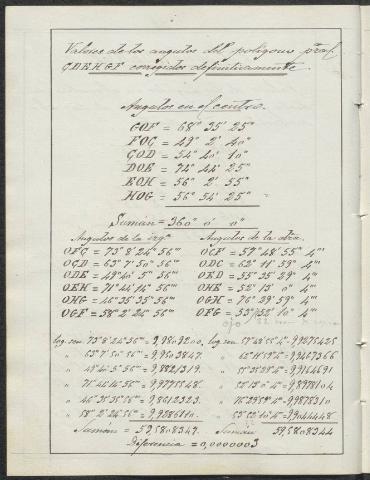 Valores de los angulos del poligono pral.
CDEHGF corregidos definitivamente.
Angulos en el centro.
GOF = 68° 35' 25"
FOC = 49° 2' 40"
COD = 54° 40' 10"
DOE = 74° 44' 25"
EOH = 56° 2' 55"
HOG = 56° 54' 25"
Suman = 360° 0' 0"
Angulos de la izqª Angulos de la dra.
OFC = 73° 8' 24" 56''' OCF = 57° 48' 55" 4'''
OCD = 63° 7' 50" 56''' ODC = 62° 11' 59" 4'''
ODE = 49° 40' 5" 56''' OED = 55° 35' 29" 4'''
OEH = 71° 44' 14" 56''' OHE = 52° 13' 0" 4'''
OHG = 46° 35' 35" 56''' OGH = 76° 29' 59" 4'''
OGF = 58° 2' 24" 56''' OFG = 53° 52' 10" 4'''
log. sen 73° 8' 24" 56''' = 9,9809200. log. sen 57° 48' 55" 4''' = 9,9275425
" 63° 7' 50" 56''' = 9,9503847. 62° 11' 59" 4''' = 9,9467366
" 49° 40' 5" 56''' = 9,8821319. " 55° 35' 29" 4''' = 9,9164691
" 71° 44' 14" 56''' = 9,9775548. " 52° 13' 0" 4''' = 9,8978104
" 46° 35' 35" 56''' = 9,8612323. " 76° 29' 59" 4''' = 9,9878310
" 58° 2' 24" 56''' = 9,9286110. " 53° 52' 10" 4''' = 9,9044448
Suman = 59,5808347. Suman 59,5808344
Diferencia = 0,0000003